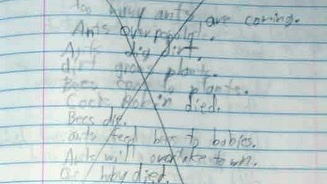 Too many ants are coming.
Ants overpopulate.
Ants dig dirt.
dirt grow plants.
Bees come to plants.
Cock Robin died.
Bees die.
ants feed bees to babies.
Ants will overtake town.
died.